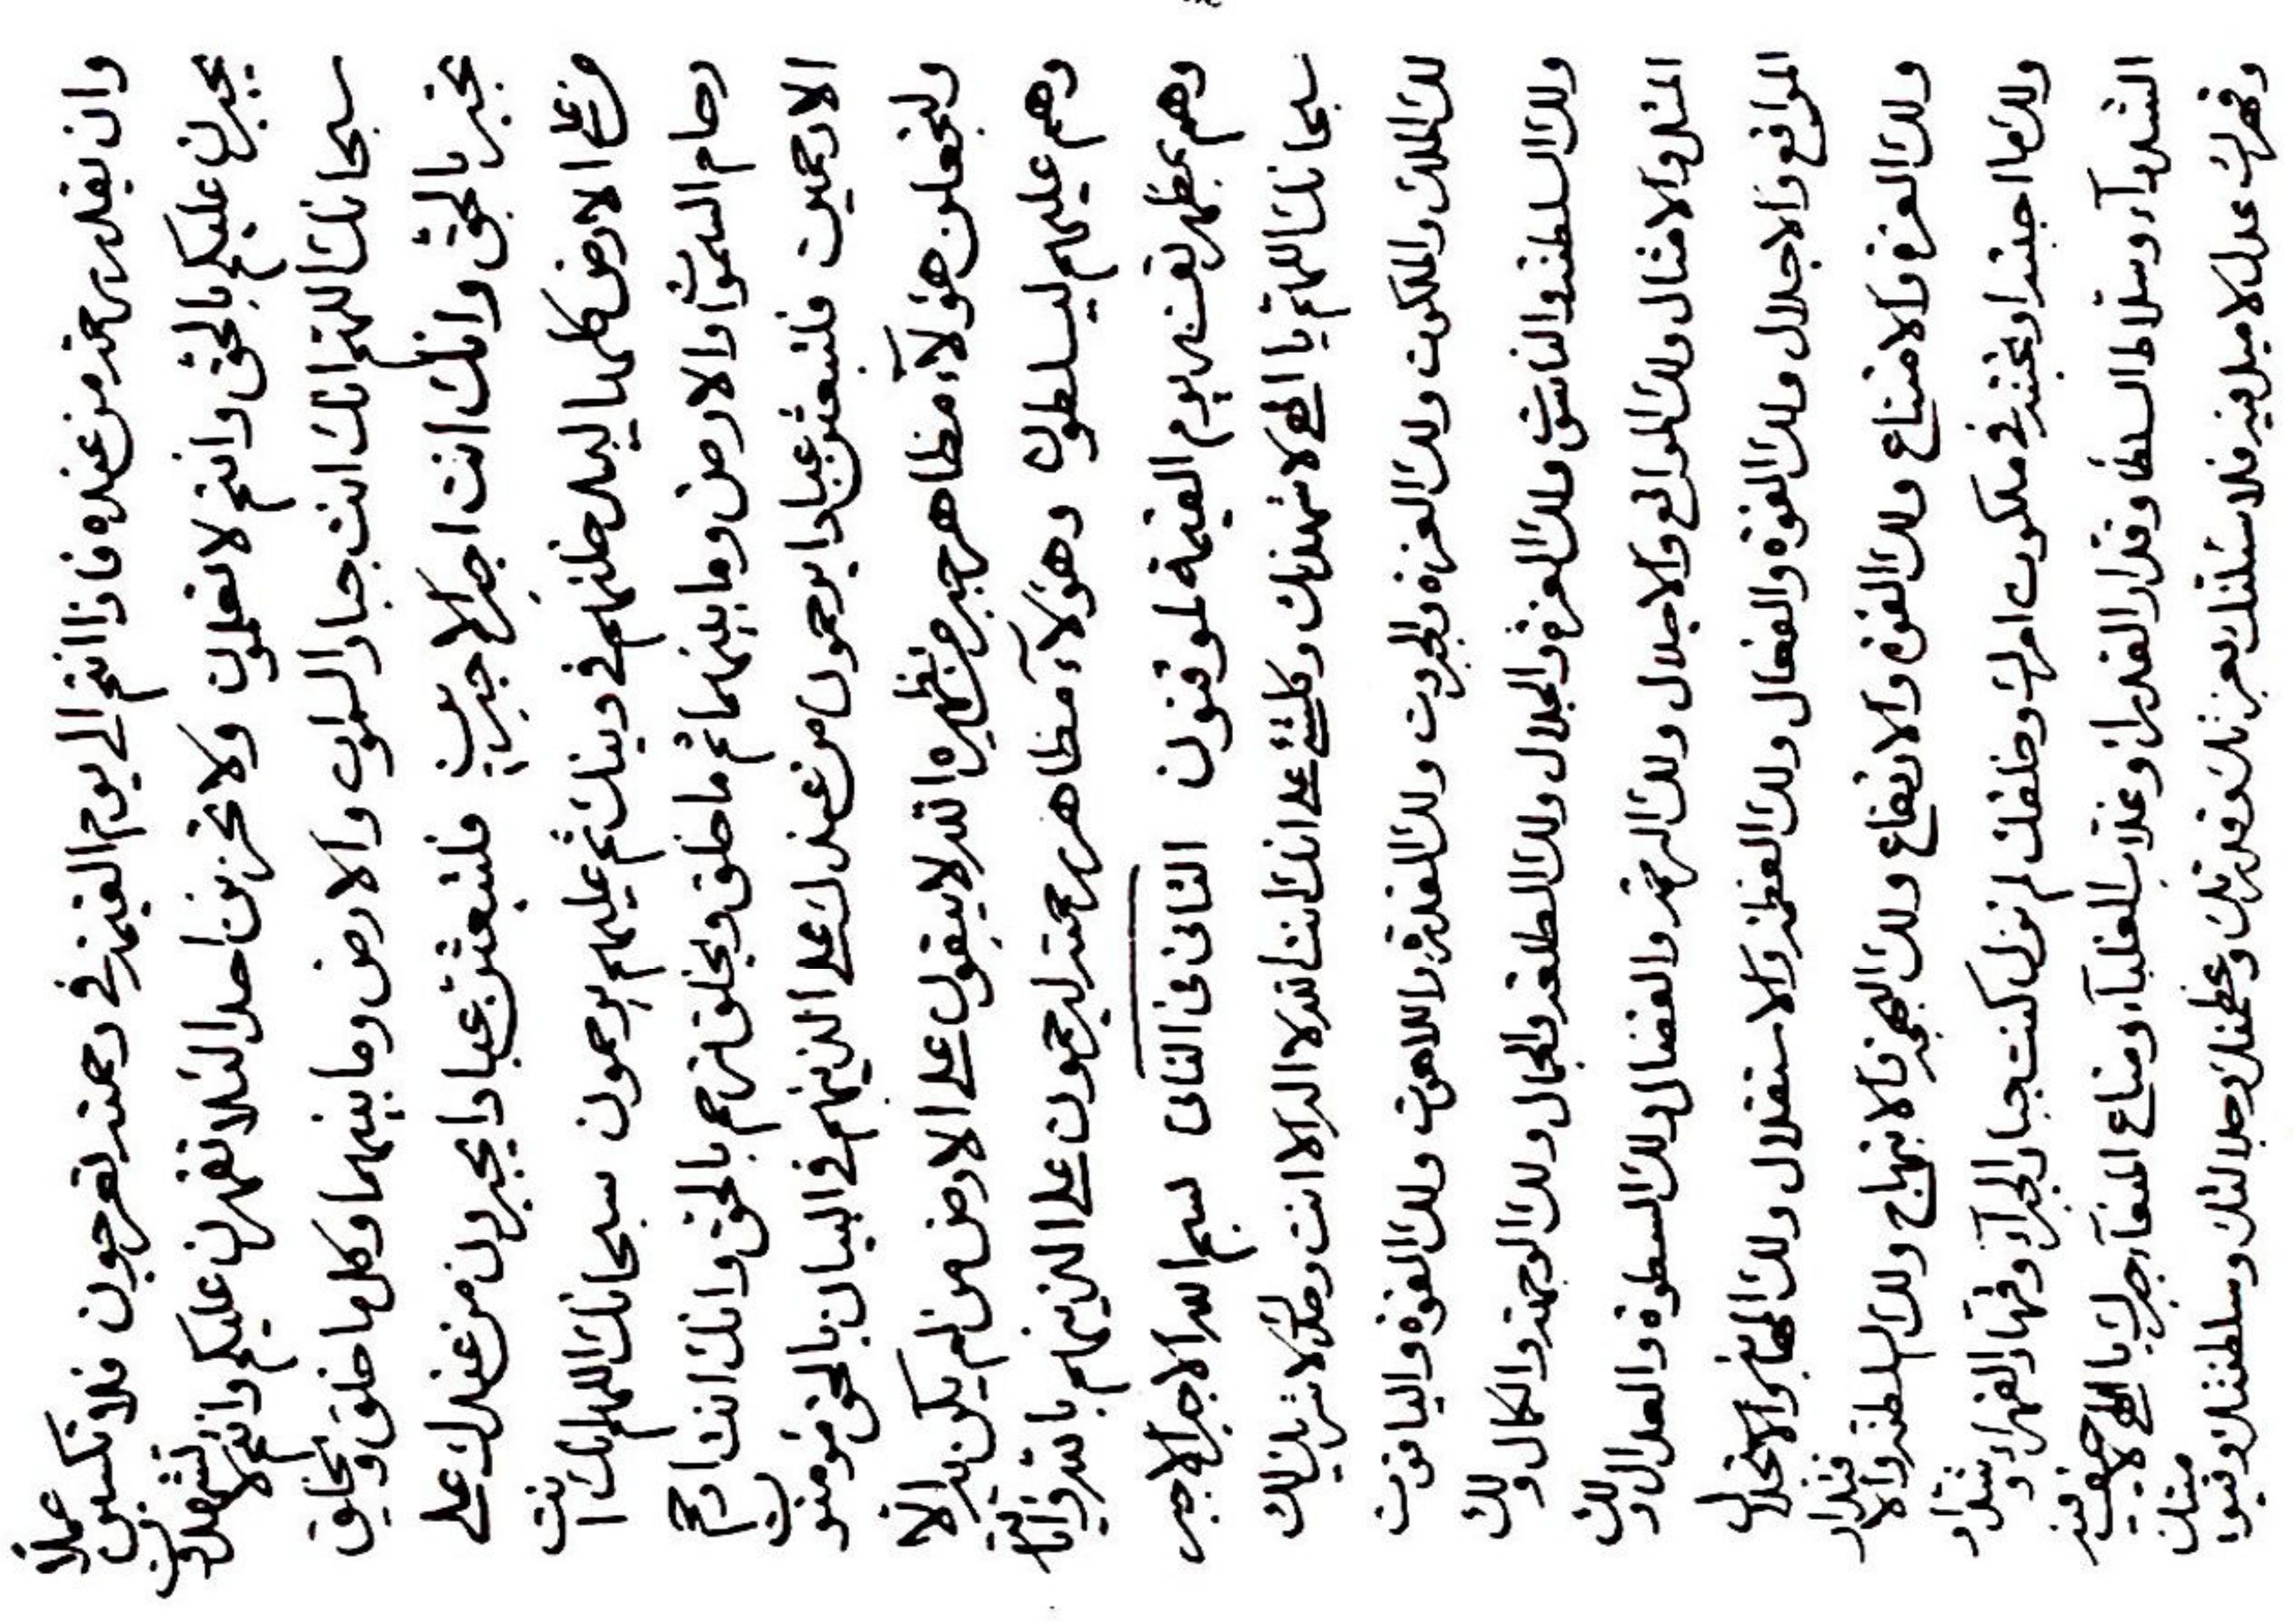 وان يقدر رحمته من عنده فاذا انتم الى يوم القيمة في رحمته تعرجون فلا تكسبن عملاً
يجبرن عليكم بالحق وانتم لا تعلمون ولا تحزنن احدا لئلا تقهرن عليكم وانتم لا تشهدون
سبحانك اللهم انك انت جبار السموات والارض وما بينهما وكل ما خلق ويخلق
تجبر بالحق وانك انت اجبر الاجبرين فلتبعثن عبادا يجبرون من عندك على
من على الارض كلها ليدخلنهم في دينك ثم عليهم يرحمون سبحانك اللهم انك انت
رحام السموات والارض وما بينهما ثم ما خلق ويخلق ترحم بالحق وانك انت ارحم
الارحمين فلتبعثن عبادا يرحمون من عندك على الذينهم في البيان بالحق مؤمنون
ولتجعلن هؤلآء مظاهر جبر من يظهره الله لا يبقون على الارض من لم يكن به الا
وهم عليهم ليسلطون وهؤلآء مظاهر رحمته ليرحمون على الذينهم بالله وآياته
وهم بمظهر نفسه يوم القيمة لموقنون الثاني في الثاني بسم الله الاجبر الاجبر
سبحانك اللهم يا الهي لاشهدنك وكلشيء على انك انت الله لا اله الا انت وحدك لا شريك لك
لك الملك والملكوت ولك العزة والجبروت ولك القدرة واللاهوت ولك القوة والياقوت
ولك السلطنة والناسوت ولك العزة والجلال ولك الطلعة والجمال ولك الوجهة والكمال ولك
المثل والامثال ولك المواقع والاجلال ولك الرحمة والفضال ولك السطوة والعدال ولك
المواقع والاجلال ولك القوة والفعال ولك العظمة والاستقلال ولك والاتجلال
ولك العزة والامتناع ولك القوة والارتفاع ولك البهجة والابتهاج ولك السلطنة والاقتدار
ولك ما احببته او تحبنه في ملكوت امرك وخلقك لم تزل كنت جبار الجبرآء وقهار القهرآء وشداد
الشددآء وسلاط السلطا وقدار القدرآء وغلاب الغلبآء ومناع المنعآء جبرك يا الهي لا حيف فيه
وقهرك عدل لا ميل فيه فلاسئلنك بعزتك وقدرتك وعظمتك وجلالتك وسلطنتك منك